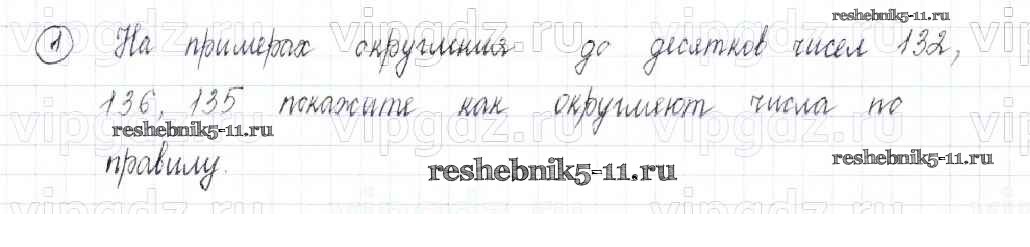 reshebnik5-11.ru
1 На примерах округления до десятков чисел 132,
136, 135 покажите как округляют числа по
reshebnik5-11.ru
правилу.
reshebnik5-11.ru
reshebnik5-11.ru